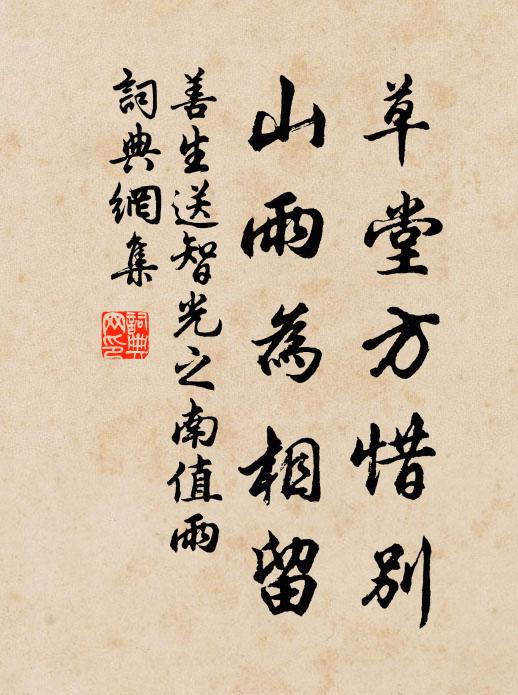 草堂方惜別
山雨為相留
善生送智光之南值雨
詞典網集
詞典
网印